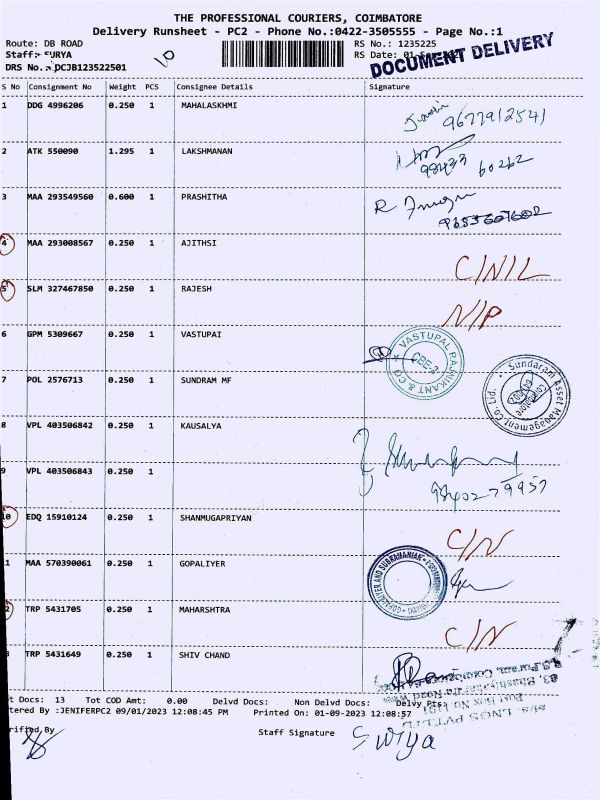 THE PROFESSIONAL COURIERS, COIMBATORE
Delivery Runsheet - PC2 - Phone No.:0422-3505555 - Page No.:1
Route: DB ROAD
RS No.: 1235225
Staff: SURYA
10
RS Date: 01-Sep
DRS No.: DCJB123522501
DOCUMENT DELIVERY
S No Consignment No Weight PCS Consignee Details Signature
1 DDG 4996206 0.250 1 MAHALASKHMI
9677912541
2 ATK 550090 1.295 1 LAKSHMANAN
98433 60262
3 MAA 293549560 0.600 1 PRASHITHA
R
9655607602
4 MAA 293008567 0.250 1 AJITHSI C/N/L
5 SLM 327467850 0.250 1 RAJESH N/P
6 GPM 5309667 0.250 1 VASTUPAI
VASTUPAL RAJNIKANT & CO CBE-2
7 POL 2576713 0.250 1 SUNDRAM MF
Sundaram Asset Management Co. Ltd. Coimbatore
8 VPL 403506842 0.250 1 KAUSALYA
9 VPL 403506843 0.250 1
9840279957
10 EDQ 15910124 0.250 1 SHANMUGAPRIYAN C/N
1 MAA 570390061 0.250 1 GOPALIYER
GOPALAIYER AND SUBRAMANIAN
2 TRP 5431705 0.250 1 MAHARSHTRA C/N
TRP 5431649 0.250 1 SHIV CHAND
t Docs: 13 Tot COD Amt: 0.00 Delvd Docs: Non Delvd Docs: Delvy Pts:
tered By :JENIFERPC2 09/01/2023 12:08:45 PM Printed On: 01-09-2023 12:08:57
rified By
Staff Signature
Surya